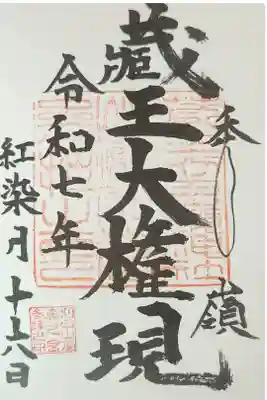 嶺
蔵王大権現
令和七年
紅染月十六日